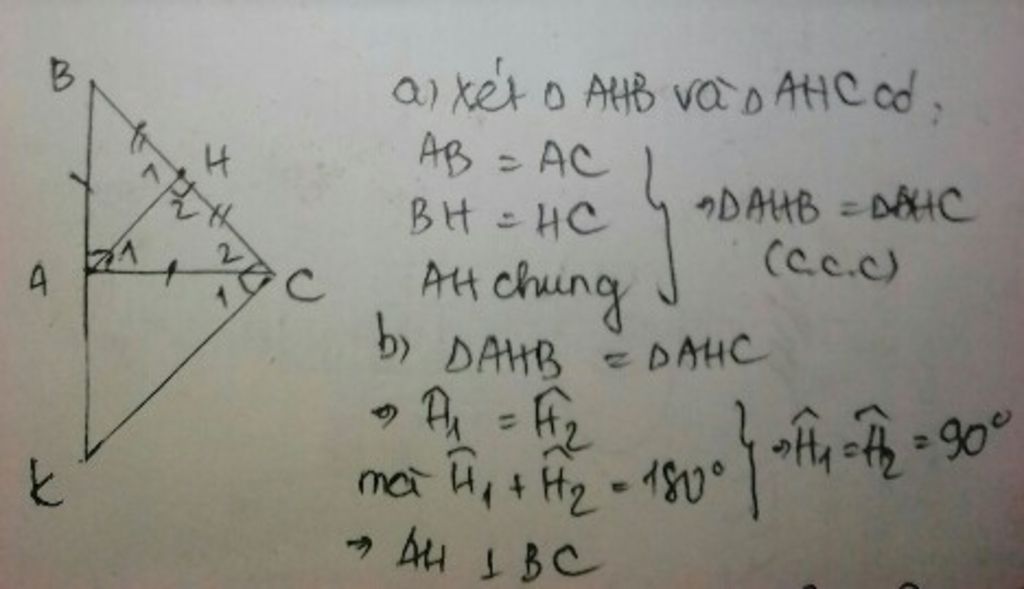 B
H
1
2
A
1
2
1
C
K
a) Xét Δ AHB và Δ AHC có:
AB = AC
BH = HC
AH chung
⇒ ΔAHB = ΔAHC
(c.c.c)
b) ΔAHB = ΔAHC
⇒ Ĥ1 = Ĥ2
mà Ĥ1 + Ĥ2 = 180°
⇒ Ĥ1 = Ĥ2 = 90°
⇒ AH ⊥ BC